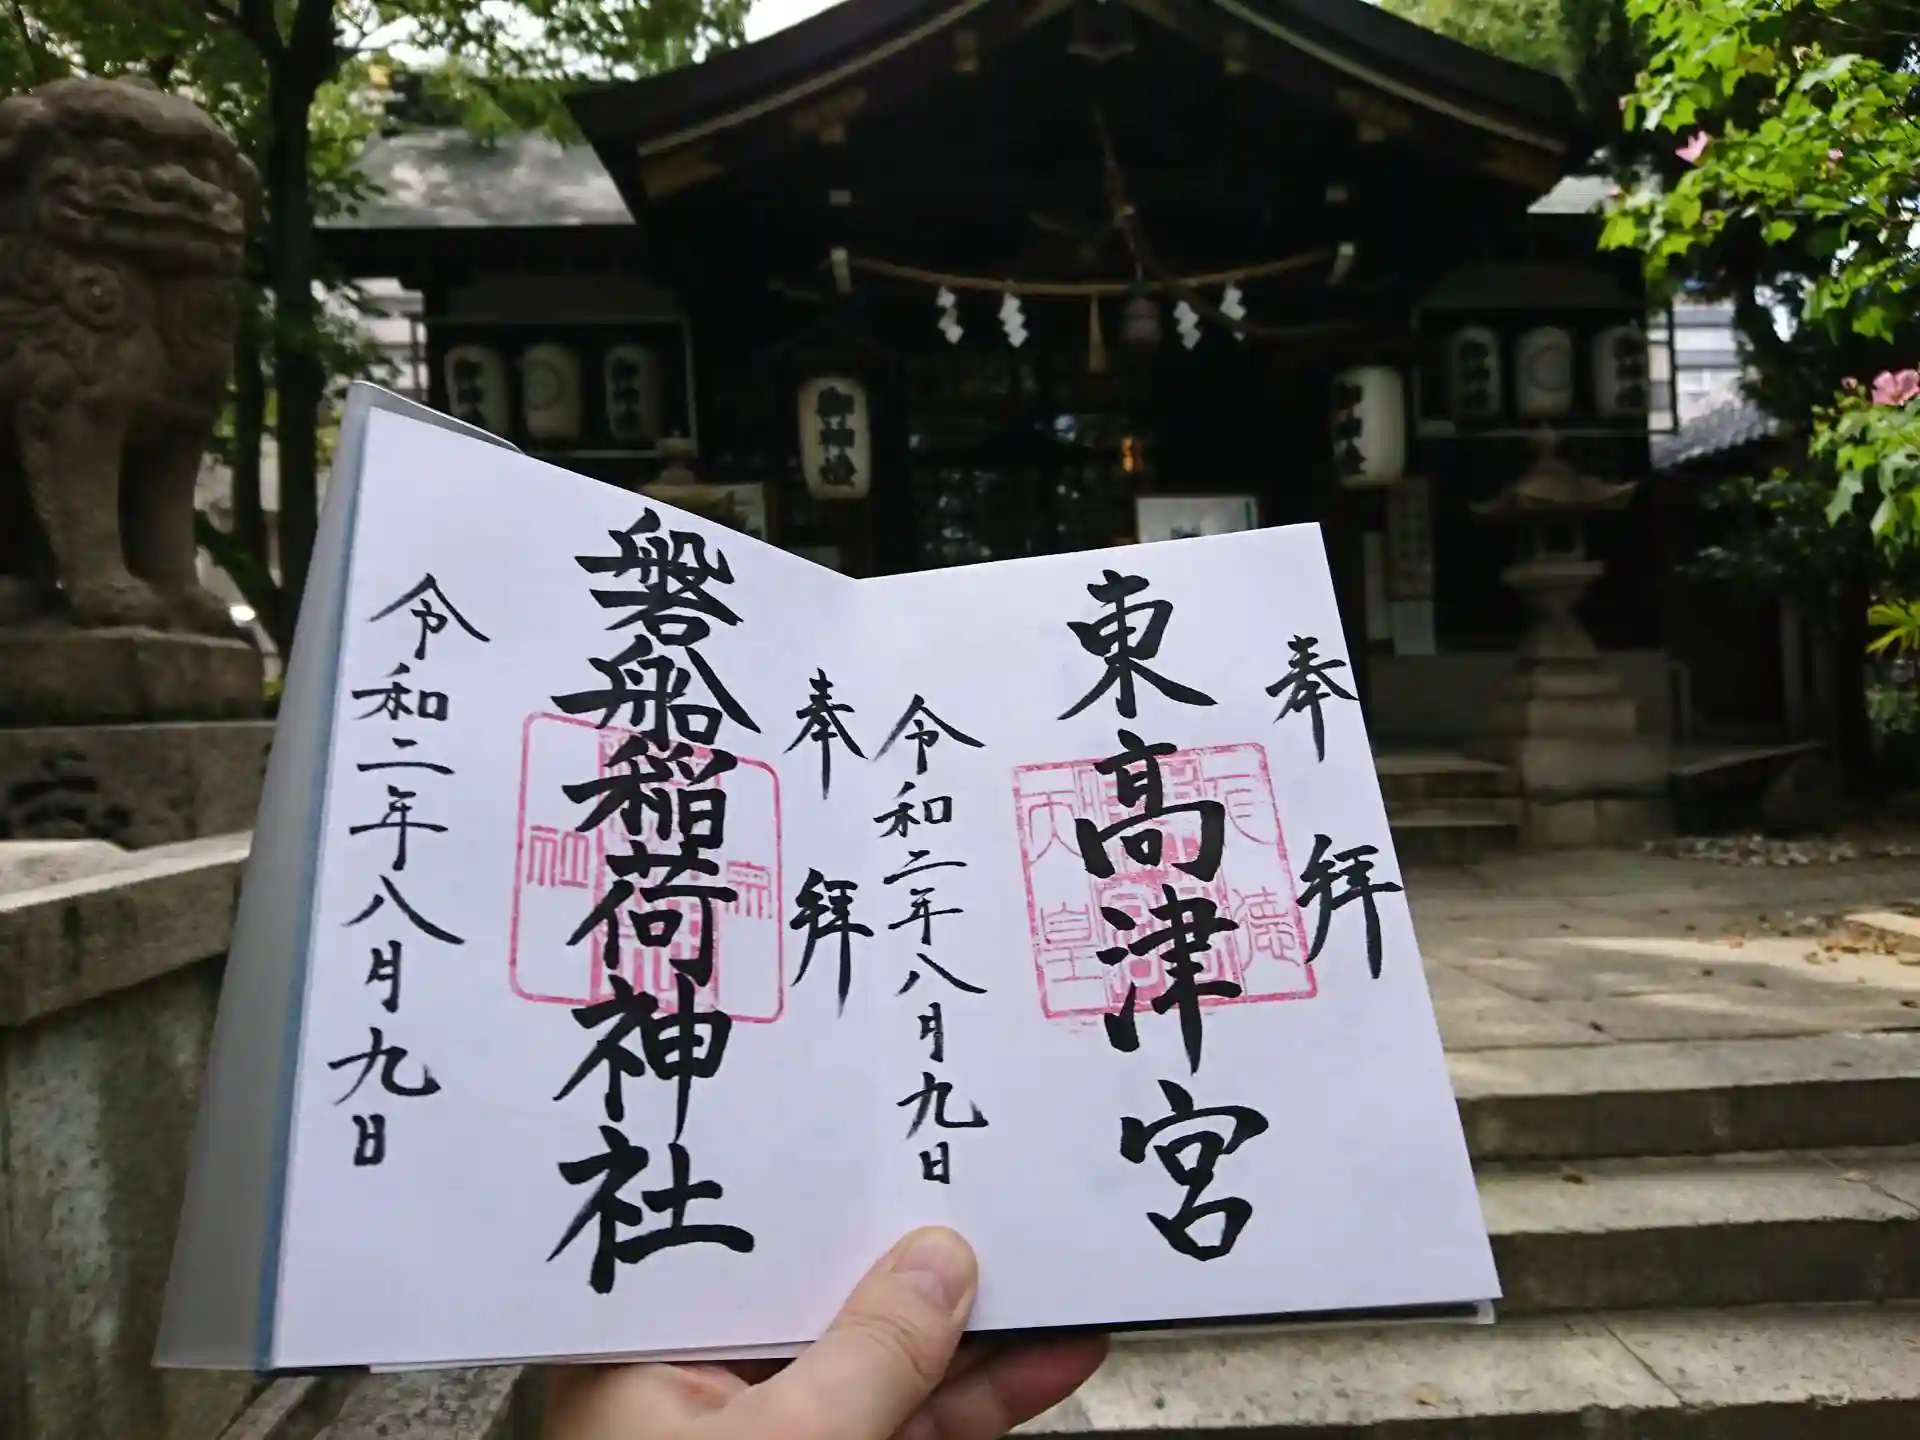 奉拝
東高津宮
令和二年八月九日
奉拝
磐船稲荷神社
令和二年八月九日
御神燈
御神燈